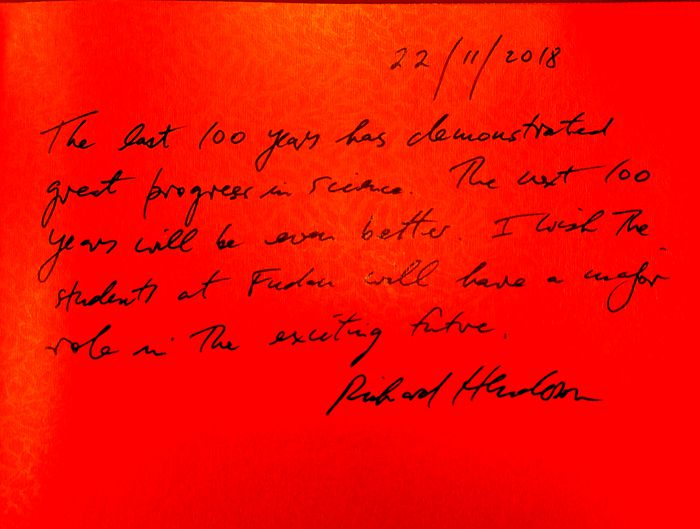 22/11/2018
The last 100 years has demonstrated
great progress in science. The next 100
years will be even better. I wish the
students at Fudan will have a major
role in the exciting future.
Richard Henderson